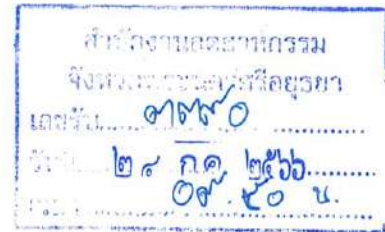 สำนักงานอุตสาหกรรม
จังหวัดพระนครศรีอยุธยา
เลขรับ
วันที่ ๒๘ ก.ค. ๒๕๖๖
๐๙.๕๐ น.